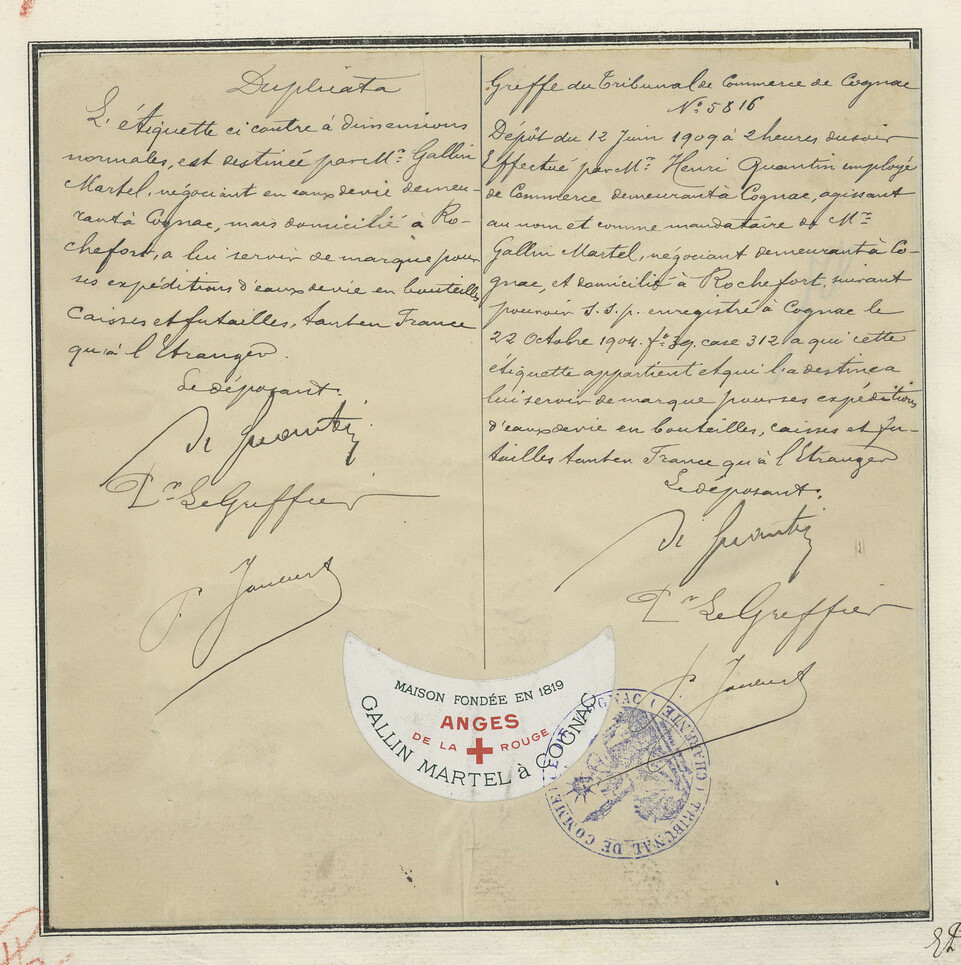 Duplicata
L'étiquette ci contre à dimensions
normales, est destinée par Mr. Gallin
Martel, négociant en eaux de vie demeu-
rant à Cognac, mais domicilié à Ro-
chefort, a lui servir de marque pour
ses expéditions d'eaux de vie en bouteilles
caisses et futailles, tant en France
qu'à l'Etranger.
Le déposant.
H. Quantin
Pr. Le Greffier
P. Joubert
Greffe du Tribunal de Commerce de Cognac
No. 5816
Dépôt du 12 Juin 1909 à 2 heures du soir
Effectué par Mr. Henri Quantin employé
de Commerce demeurant à Cognac, agissant
au nom et comme mandataire de Mr.
Gallin Martel, négociant demeurant à Co-
gnac, et domicilié à Rochefort, suivant
pouvoir S.S.p. enregistré à Cognac le
22 Octobre 1904. fo. 39. case 312 a qui cette
étiquette appartient et qui l'a destine a
lui servir de marque pour ses expéditions
d'eaux de vie en bouteilles, caisses et fu-
tailles tant en France qu'à l'Etranger
Le déposant.
H. Quantin
Pr. Le Greffier
MAISON FONDÉE EN 1819
ANGES
DE LA ROUGE
GALLIN MARTEL à COGNAC
TRIBUNAL DE COMMERCE DE COGNAC (CHARENTE)